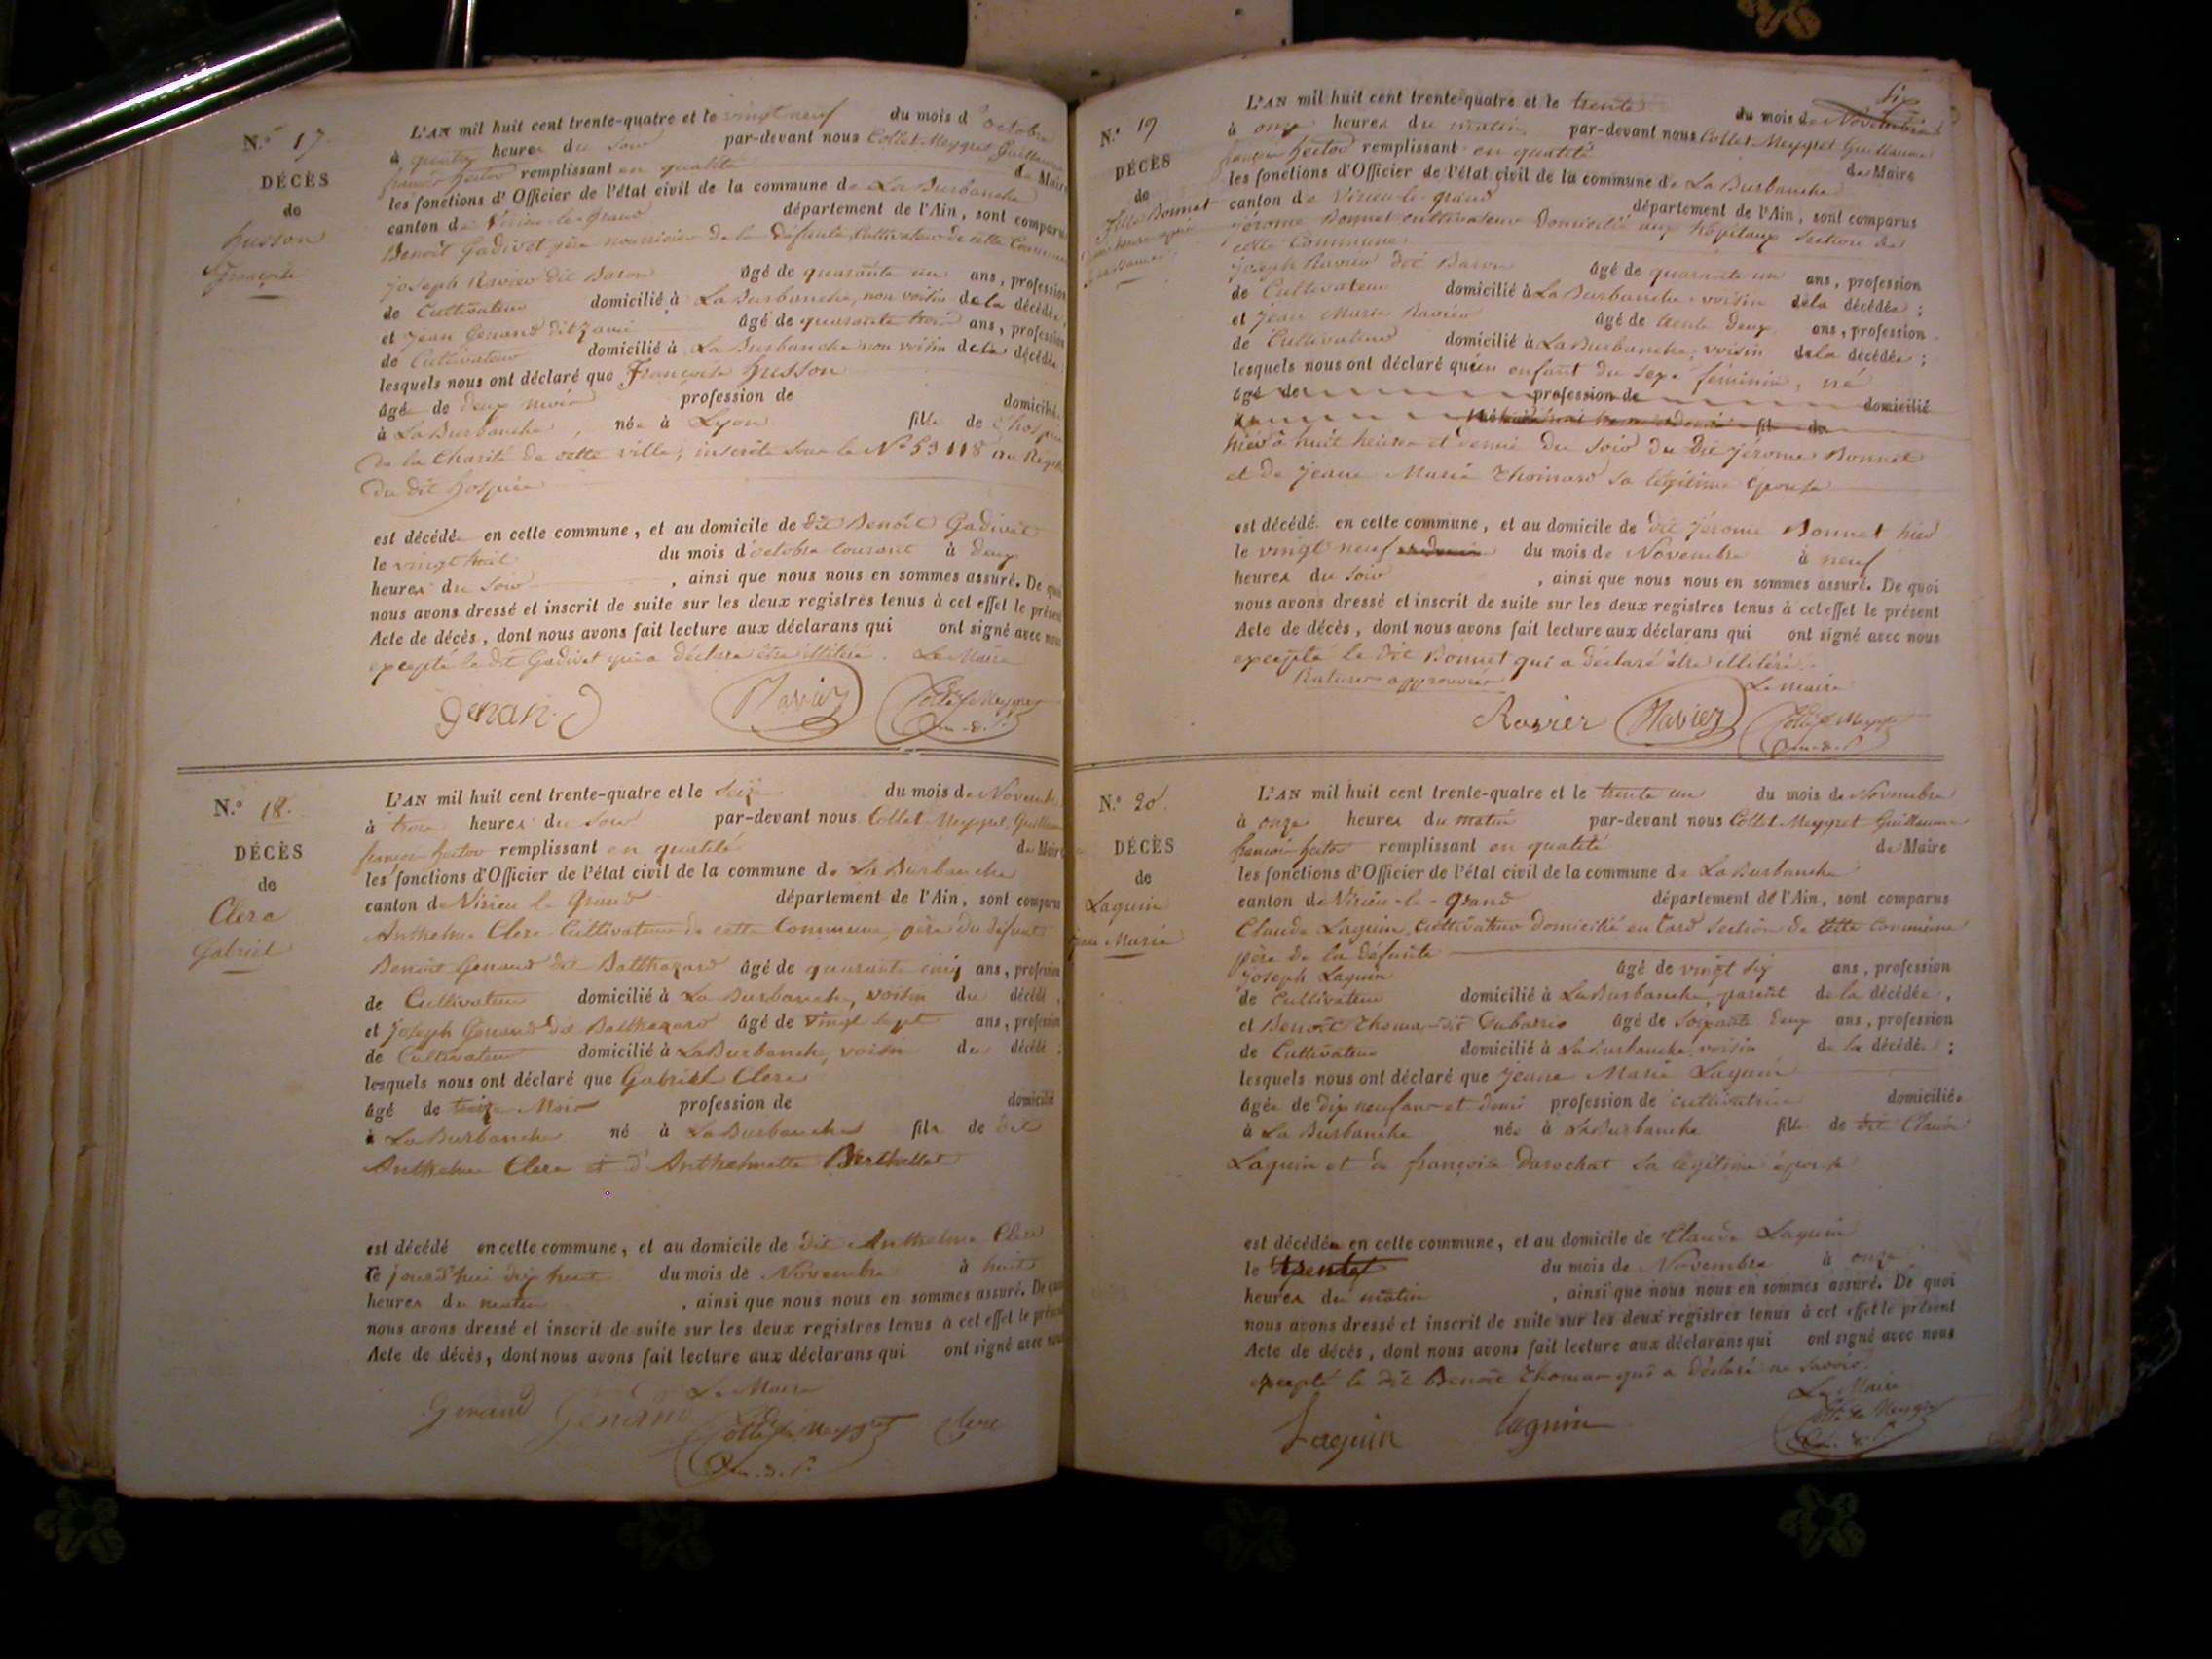 N.° 17.
DÉCÈS
de
husson
françoise
L'AN mil huit cent trente-quatre et le vingt neuf du mois d'octobre
à quatre heures du soir par-devant nous Collet-Meygret Guillaume
françois hector remplissant en qualité de Maire
les fonctions d'Officier de l'état civil de la commune de La Burbanche
canton de Virieu-le-Grand département de l'Ain, sont comparu
Benoît Gadivet père nourricier de la défunte, Cultivateur de cette Commune
joseph Ravier dit Baron âgé de quarante un ans, profession
de Cultivateur domicilié à La Burbanche, non voisin de la décédée,
et jean Genand dit âgé de quarante trois ans, profession
de Cultivateur domicilié à La Burbanche non voisin de la décédée;
lesquels nous ont déclaré que Françoise husson
âgée de deux mois profession de domiciliée
à La Burbanche, née à Lyon fille de l'hospice
de la Charité de cette ville, inscrite sous le N° 53118 au
du dit hospice
est décédée en cette commune, et au domicile de dit Benoît Gadivet
le vingt huit du mois d'octobre courant à deux
heures du soir, ainsi que nous nous en sommes assuré. De quoi
nous avons dressé et inscrit de suite sur les deux registres tenus à cet effet le présent
Acte de décès, dont nous avons fait lecture aux déclarans qui ont signé avec nous
excepté le dit Gadivet qui a déclaré être illitéré. Le Maire
Genand Ravier Collet Meygret
N.° 18.
DÉCÈS
de
Clerc
Gabriel
L'AN mil huit cent trente-quatre et le seize du mois de Novembre
à trois heures du soir par-devant nous Collet-Meygret, Guillaume
françois hector remplissant en qualité de Maire
les fonctions d'Officier de l'état civil de la commune de La Burbanche
canton de Virieu le Grand département de l'Ain, sont comparu
Anthelme Clerc Cultivateur de cette Commune, père du défunt
Benoît Genand dit Balthazard âgé de quarante cinq ans, profession
de Cultivateur domicilié à La Burbanche, voisin du décédé,
et joseph Genand dit Balthazard âgé de vingt sept ans, profession
de Cultivateur domicilié à La Burbanche, voisin du décédé;
lesquels nous ont déclaré que Gabriel Clerc
âgé de treize Mois profession de domicilié
à La Burbanche né à La Burbanche fils de dit
Anthelme Clerc et d'Anthelmette Berthellet
est décédé en cette commune, et au domicile de dit Anthelme Clerc
le jourd'hui dix huit du mois de Novembre à huit
heures du matin, ainsi que nous nous en sommes assuré. De quoi
nous avons dressé et inscrit de suite sur les deux registres tenus à cet effet le présent
Acte de décès, dont nous avons fait lecture aux déclarans qui ont signé avec nous
Le Maire
Genand Genand Collet Meygret Clerc
N.° 19
DÉCÈS
de
fille Bonnet
L'AN mil huit cent trente-quatre et le trente du mois de Novembre
à onze heures du matin, par-devant nous Collet Meygret Guillaume
françois hector remplissant en qualité de Maire
les fonctions d'Officier de l'état civil de la commune de La Burbanche
canton de Virieu-le-grand département de l'Ain, sont comparus
jérome Bonnet cultivateur Domicilié aux hôpitaux section de
cette Commune
joseph Ravier dit Baron âgé de quarante un ans, profession
de Cultivateur domicilié à La Burbanche voisin de la décédée;
et jean Marie Ravier âgé de trente deux ans, profession
de Cultivateur domicilié à La Burbanche, voisin de la décédée;
lesquels nous ont déclaré qu'un enfant du sexe féminin, né
âgé de profession de domicilié
fils de
hier à huit heures et demie du soir du Dit jérome Bonnet
et de jeane Marie Thomard sa légitime épouse
est décédé en cette commune, et au domicile de dit jérome Bonnet hier
le vingt neuf du mois de Novembre à neuf
heures du soir, ainsi que nous nous en sommes assuré. De quoi
nous avons dressé et inscrit de suite sur les deux registres tenus à cet effet le présent
Acte de décès, dont nous avons fait lecture aux déclarans qui ont signé avec nous
excepté le dit Bonnet qui a déclaré être illitéré.
Ratures approuvées Le maire
Ravier Ravier Collet Meygret
N.° 20.
DÉCÈS
de
Laguin
jeane Marie
L'AN mil huit cent trente-quatre et le trente un du mois de Novembre
à onze heures du matin par-devant nous Collet Meygret Guillaume
francois hector remplissant en qualité de Maire
les fonctions d'Officier de l'état civil de la commune de La Burbanche
canton de Virieu-le-Grand département de l'Ain, sont comparus
Claude Laguin, cultivateur domicilié en section de cette commune
père de la défunte
joseph Laguin âgé de vingt six ans, profession
de Cultivateur domicilié à La Burbanche, parent de la décédée,
et Benoît Thomas dit âgé de soixante deux ans, profession
de Cultivateur domicilié à La Burbanche voisin de la décédée;
lesquels nous ont déclaré que jeane Marie Laguin
âgée de dix neuf ans et demi profession de cultivatrice domiciliée
à La Burbanche née à La Burbanche fille de dit Claude
Laguin et de françoise Durochat sa légitime épouse
est décédée en cette commune, et au domicile de Claude Laguin
le trente du mois de Novembre à onze
heures du matin, ainsi que nous nous en sommes assuré. De quoi
nous avons dressé et inscrit de suite sur les deux registres tenus à cet effet le présent
Acte de décès, dont nous avons fait lecture aux déclarans qui ont signé avec nous
excepté le dit Benoît Thomas qui a déclaré ne savoir.
Le Maire
Laguin laguin Collet Meygret